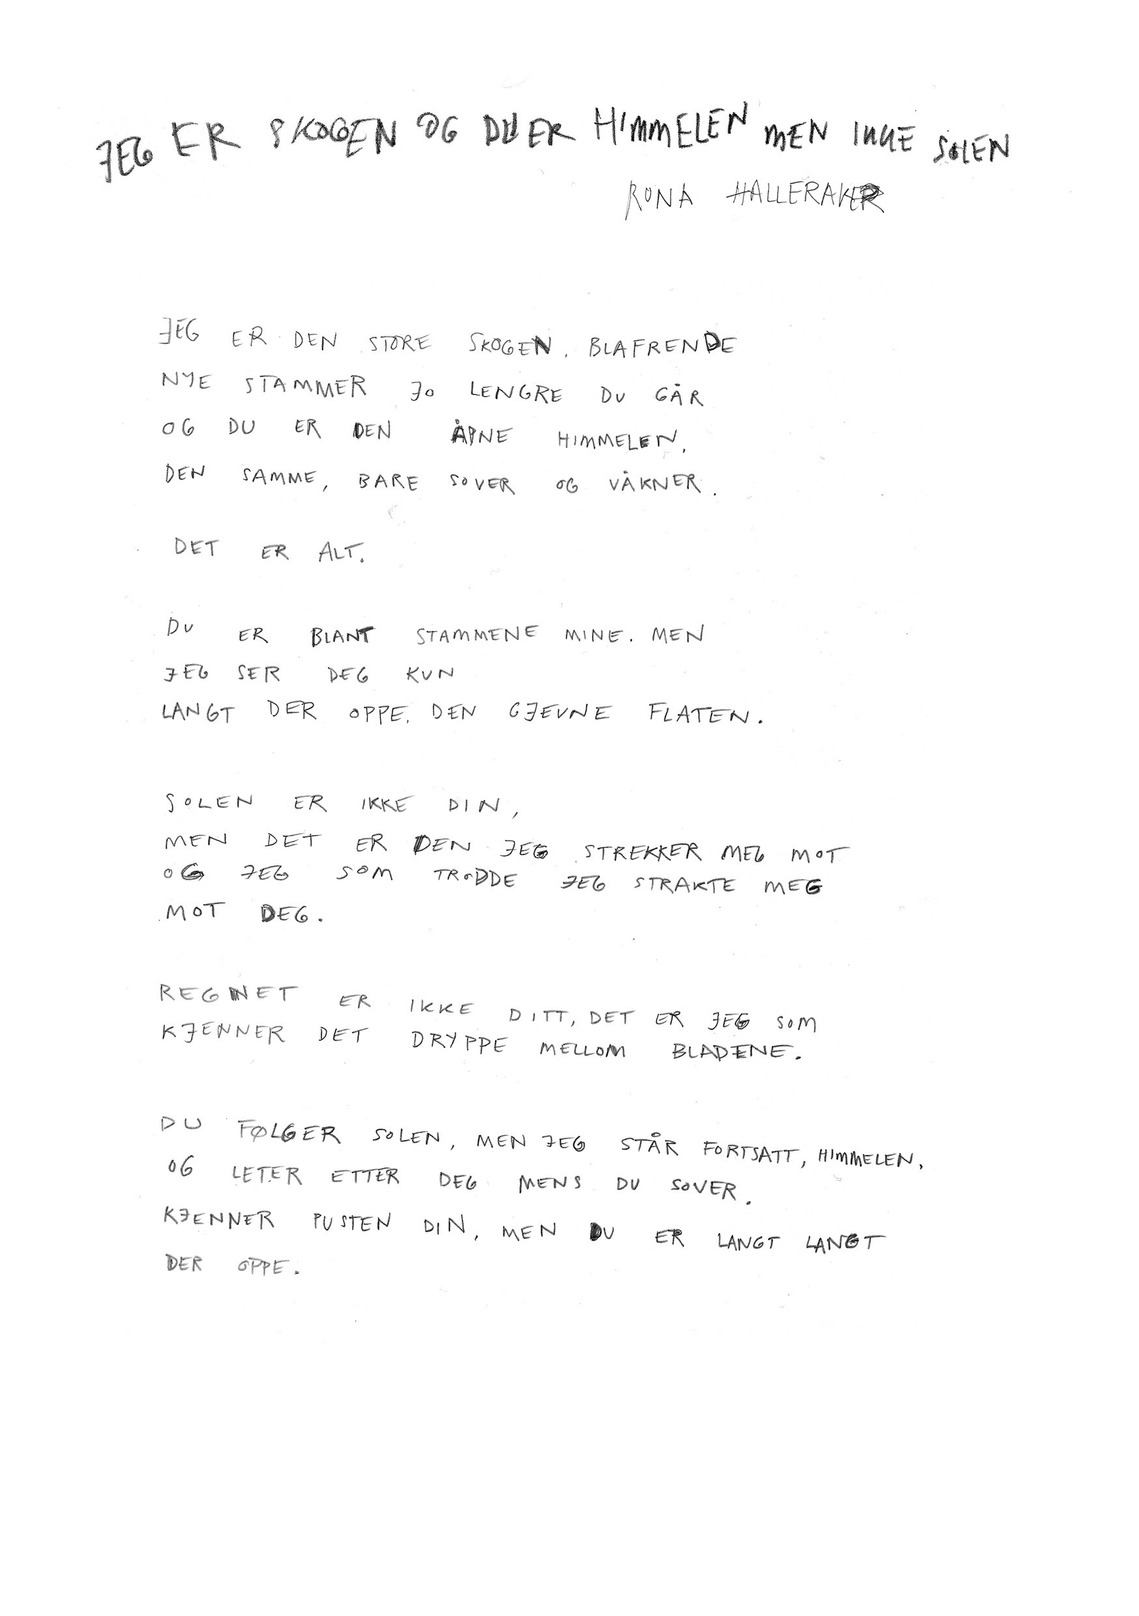 JEG ER SKOGEN OG DU ER HIMMELEN MEN IKKE SOLEN
RONA HALLERAKER
JEG ER DEN STORE SKOGEN, BLAFRENDE
NYE STAMMER JO LENGRE DU GÅR
OG DU ER DEN ÅPNE HIMMELEN,
DEN SAMME, BARE SOVER OG VÅKNER.
DET ER ALT.
DU ER BLANT STAMMENE MINE. MEN
JEG SER DEG KUN
LANGT DER OPPE, DEN GJEVNE FLATEN.
SOLEN ER IKKE DIN,
MEN DET ER DEN JEG STREKKER MEG MOT
OG JEG SOM TRODDE JEG STRAKTE MEG
MOT DEG.
REGNET ER IKKE DITT, DET ER JEG SOM
KJENNER DET DRYPPE MELLOM BLADENE.
DU FØLGER SOLEN, MEN JEG STÅR FORTSATT, HIMMELEN,
OG LETER ETTER DEG MENS DU SOVER.
KJENNER PUSTEN DIN, MEN DU ER LANGT LANGT
DER OPPE.